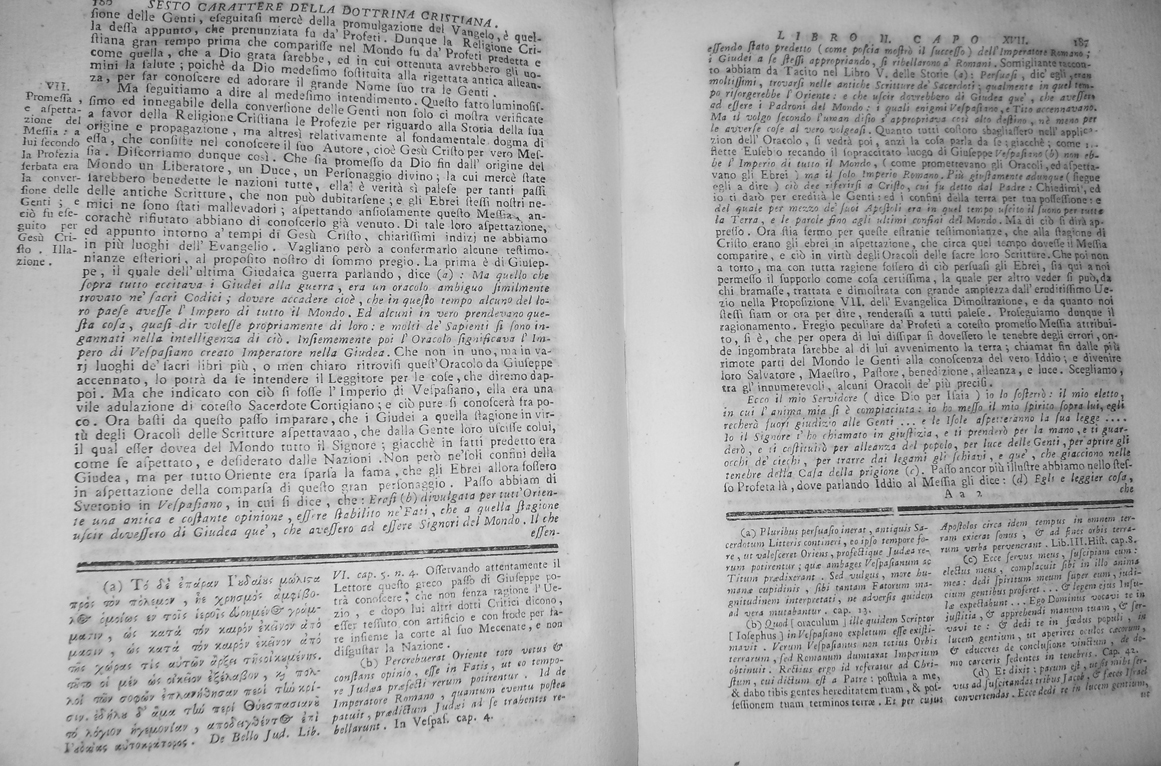 186 SESTO CARATTERE DELLA DOTTRINA CRISTIANA.
ſione delle Genti, eſeguitaſi mercè della promulgazione del Vangelo, è quel-
la deſſa appunto, che prenunziata fu da' Profeti. Dunque la Religione Cri-
ſtiana gran tempo prima che compariſſe nel Mondo fu da' Profeti predetta e
come quella, che a Dio grata ſarebbe, ed in cui ottenuta avrebbero gli uo-
mini la ſalute; poichè da Dio medeſimo ſoſtituita alla rigettata antica allean-
za, per far conoſcere ed adorare il grande Nome ſuo tra le Genti.
VII.
Promeſſa,
e aſpetta-
zione del
Meſſia: a
lui ſecondo
la Profezia
ſerbata era
la conver-
ſione delle
Genti; e
ciò fu eſe-
guito per
Gesù Cri-
ſto. Illa-
zione.
Ma ſeguitiamo a dire al medeſimo intendimento. Queſto fatto luminoſiſ-
ſimo ed innegabile della converſione delle Genti non ſolo ci moſtra verificate
a favor della Religione Criſtiana le Profezie per riguardo alla Storia della ſua
origine e propagazione, ma altresì relativamente al fondamentale dogma di
eſſa, che conſiſte nel conoſcere il ſuo Autore, cioè Gesù Criſto per vero Meſ-
ſia. Diſcorriamo dunque così. Che ſia promeſſo da Dio fin dall' origine del
Mondo un Liberatore, un Duce, un Perſonaggio divino; la cui mercè ſtate
ſarebbero benedette le nazioni tutte, ella è verità sì paleſe per tanti paſſi
delle antiche Scritture, che non può dubitarſene; e gli Ebrei ſteſſi noſtri ne-
mici ne ſono ſtati mallevadori; aſpettando anſioſamente queſto Meſſia, an-
corachè rifiutato abbiano di conoſcerlo già venuto. Di tale loro aſpettazione,
ed appunto intorno a' tempi di Gesù Criſto, chiariſſimi indizj ne abbiamo
in più luoghi dell' Evangelio. Vagliano però a confermarlo alcune teſtimo-
nianze eſteriori, al propoſito noſtro di ſommo pregio. La prima è di Giuſep-
pe, il quale dell' ultima Giudaica guerra parlando, dice (a): Ma quello che
ſopra tutto eccitava i Giudei alla guerra, era un oracolo ambiguo ſimilmente
trovato ne' ſacri Codici; dovere accadere cioè, che in queſto tempo alcuno del lo-
ro paeſe aveſſe l' Impero di tutto il Mondo. Ed alcuni in vero prendevano que-
ſta coſa, quaſi dir voleſſe propriamente di loro: e molti de' Sapienti ſi ſono in-
gannati nella intelligenza di ciò. Inſiememente poi l' Oracolo ſignificava l' Im-
pero di Veſpaſiano creato Imperatore nella Giudea. Che non in uno, ma in va-
rj luoghi de' ſacri libri più, o men chiaro ritroviſi queſt' Oracolo da Giuſeppe
accennato, lo potrà da ſe intendere il Leggitore per le coſe, che diremo dap-
poi. Ma che indicato con ciò ſi foſſe l' Imperio di Veſpaſiano, ella era una
vile adulazione di coteſto Sacerdote Cortigiano; e ciò pure ſi conoſcerà tra po-
co. Ora baſti da queſto paſſo imparare, che i Giudei a quella ſtagione in vir-
tù degli Oracoli delle Scritture aſpettavano, che dalla Gente loro uſciſſe colui,
il qual eſſer dovea del Mondo tutto il Signore; giacchè in fatti predetto era
come ſe aſpettato, e deſiderato dalle Nazioni. Non però ne' ſoli confini della
Giudea, ma per tutto Oriente era ſparſa la fama, che gli Ebrei allora foſſero
in aſpettazione della comparſa di queſto gran perſonaggio. Paſſo abbiam di
Svetonio in Veſpaſiano, in cui ſi dice, che: Eraſi (b) divulgata per tutt' Orien-
te una antica e coſtante opinione, eſſere ſtabilito ne' Fati, che a quella ſtagione
uſcir doveſſero di Giudea que', che aveſſero ad eſſere Signori del Mondo. Il che
eſſen-
(a) Τὸ δὲ ἐπάραν Ἰυδαίυς μάλιστα
πρὸς τὸν πόλεμον, ἦν χρησμὸς ἀμφίβο-
λος ὁμοίως ἐν τοῖς ἱεροῖς εὑρημένος γράμ-
μασιν, ὡς κατὰ τὸν καιρὸν ἐκεῖνον ἀπὸ
μασιν, ὡς κατὰ τὸν καιρὸν ἐκεῖνον ἀπὸ
τῆς χώρας τις αὐτῶν ἄρξει τῆς οἰκυμένης.
τοῦτο οἱ μὲν ὡς οἰκεῖον ἐξέλαβον, κ̀ πολ-
λοὶ τῶν σοφῶν ἐπλανήθησαν περὶ τὴν κρί-
σιν. ἐδήλυ δ' ἄρα τὴν περὶ Θυεσπασιανῦ
τὸ λόγιον ἡγεμονίαν, ἀποδειχθέντος ἐπὶ
Ἰυδαίας αὐτοκράτορος. De Bello Jud. Lib.
VI. cap. 5. n. 4. Oſſervando attentamente il
Lettore queſto greco paſſo di Giuſeppe po-
trà conoſcere, che non ſenza ragione l' Ue-
zio, e dopo lui altri dotti Critici dicono,
eſſer teſſuto con artificio e con frode per fa-
re inſieme la corte al ſuo Mecenate, e non
diſguſtar la Nazione.
(b) Percrebuerat Oriente toto vetus &
conſtans opinio, eſſe in Fatis, ut eo tempo-
re Judæa præfecti rerum potirentur. Id de
Imperatore Romano, quantum eventu poſtea
patuit, prædictum Judæi ad ſe trahentes re-
bellarunt. In Veſpaſ. cap. 4.
LIBRO II. CAPO XVII. 187
eſſendo ſtato predetto (come poſcia moſtrò il ſucceſſo) dell' Imperatore Romano;
i Giudei a ſe ſteſſi appropriando, ſi ribellarono a' Romani. Somigliante raccon-
to abbiam da Tacito nel Libro V. delle Storie (a): Perſuaſi, dic' egli, eran
moltiſſimi, trovarſi nelle antiche Scritture de' Sacerdoti; qualmente in quel tem-
po riſorgerebbe l' Oriente: e che uſcir dovrebbero di Giudea que', che aveſſero
ad eſſere i Padroni del Mondo: i quali enigmi Veſpaſiano, e Tito accennavano.
Ma il volgo ſecondo l' uman diſio s' appropriava così alto deſtino, nè meno per
le avverſe coſe al vero volgeaſi. Quanto tutti coſtoro sbagliaſſero nell' applica-
zion dell' Oracolo, ſi vedrà poi, anzi la coſa parla da ſe; giacchè; come ri-
flette Euſebio recando il ſopraccitato luogo di Giuſeppe Veſpaſiano (b) non eb-
be l' Imperio di tutto il Mondo, (come promettevano gli Oracoli, ed aſpetta-
vano gli Ebrei) ma il ſolo Imperio Romano. Più giuſtamente adunque (ſiegue
egli a dire) ciò dee riferirſi a Criſto, cui fu detto dal Padre: Chiedimi, ed
io ti darò per eredità le Genti: ed i confini della terra per tua poſſeſſione: e
del quale per mezzo de' ſuoi Apoſtoli era in quel tempo uſcito il ſuono per tutta
la Terra, e le parole fino agli ultimi confini del Mondo. Ma di ciò ſi dirà ap-
preſſo. Ora ſtia fermo per queſte eſtranie teſtimonianze, che alla ſtagione di
Criſto erano gli ebrei in aſpettazione, che circa quel tempo doveſſe il Meſſia
comparire, e ciò in virtù degli Oracoli delle ſacre loro Scritture. Che poi non
a torto, ma con tutta ragione foſſero di ciò perſuaſi gli Ebrei, ſia qui a noi
permeſſo il ſupporlo come coſa certiſſima, la quale per altro veder ſi può, da
chi bramaſſe, trattata e dimoſtrata con grande ampiezza dall' eruditiſſimo Ue-
zio nella Propoſizione VII. dell' Evangelica Dimoſtrazione, e da quanto noi
ſteſſi ſiam or ora per dire, renderaſſi a tutti paleſe. Proſeguiamo dunque il
ragionamento. Fregio peculiare da' Profeti a coteſto promeſſo Meſſia attribui-
to, ſi è, che per opera di lui diſſipar ſi doveſſero le tenebre degli errori, on-
de ingombrata ſarebbe al di lui avvenimento la terra; chiamar fin dalle più
rimote parti del Mondo le Genti alla conoſcenza del vero Iddio; e divenire
loro Salvatore, Maeſtro, Paſtore, benedizione, alleanza, e luce. Scegliamo,
tra gl' innumerevoli, alcuni Oracoli de' più preciſi.
Ecco il mio Servidore (dice Dio per Iſaia) io lo ſoſterrò: il mio eletto,
in cui l' anima mia ſi è compiaciuta: io ho meſſo il mio ſpirito ſopra lui, egli
recherà fuori giudizio alle Genti ... e le Iſole aſpetteranno la ſua legge ....
Io il Signore t' ho chiamato in giuſtizia, e ti prenderò per la mano, e ti guar-
derò, e ti coſtituirò per alleanza del popolo, per luce delle Genti, per aprire gli
occhi de' ciechi, per trarre dai legami gli ſchiavi, e que', che giacciono nelle
tenebre della Caſa della prigione (c). Paſſo ancor più illuſtre abbiamo nello ſteſ-
ſo Profeta là, dove parlando Iddio al Meſſia gli dice: (d) Egli e leggier coſa,
A a 2 che
(a) Pluribus perſuaſio inerat, antiquis Sa-
cerdotum Litteris contineri, eo ipſo tempore fo-
re, ut valeſceret Oriens, profectique Judæa re-
rum potirentur; quæ ambages Veſpaſianum ac
Titum prædixerant. Sed vulgus, more hu-
manæ cupidinis, ſibi tantam Fatorum ma-
gnitudinem interpretati, ne adverſis quidem
al vera mutabantur. cap. 13.
(b) Quod [oraculum] ille quidem Scriptor
[Ioſephus] in Veſpaſiano expletum eſſe exiſti-
mavit. Verum Veſpaſianus non totius Orbis
terrarum, ſed Romanum dumtaxat Imperium
obtinuit. Rectius ergo id referatur ad Chri-
ſtum, cui dictum eſt a Patre: poſtula a me,
& dabo tibi gentes hereditatem tuam, & poſ-
ſeſſionem tuam terminos terræ. Et per cujus
Apoſtolos circa idem tempus in omnem ter-
ram exierat ſonus, & ad fines orbis terra-
rum verba pervenerant. Lib. III. Hiſt. cap. 8.
(c) Ecce ſervus meus, ſuſcipiam eum:
electus meus, complacuit ſibi in illo anima
mea: dedi ſpiritum meum ſuper eum, judi-
cium gentibus proferet ... & legem ejus Inſu-
læ expectabunt ... Ego Dominus vocavi te in
juſtitia, & apprehendi manum tuam, & ſer-
vavi te: & dedi te in fœdus populi, in
lucem gentium, ut aperires oculos cæcorum,
& educeres de concluſione vinctum, de do-
mo carceris ſedentes in tenebris. Cap. 42.
(d) Et dixit: parum eſt, ut ſis mihi ſer-
vus ad ſuſcitandas tribus Jacob, & fæces Iſrael
convertendas. Ecce dedi te in lucem gentium,
ut